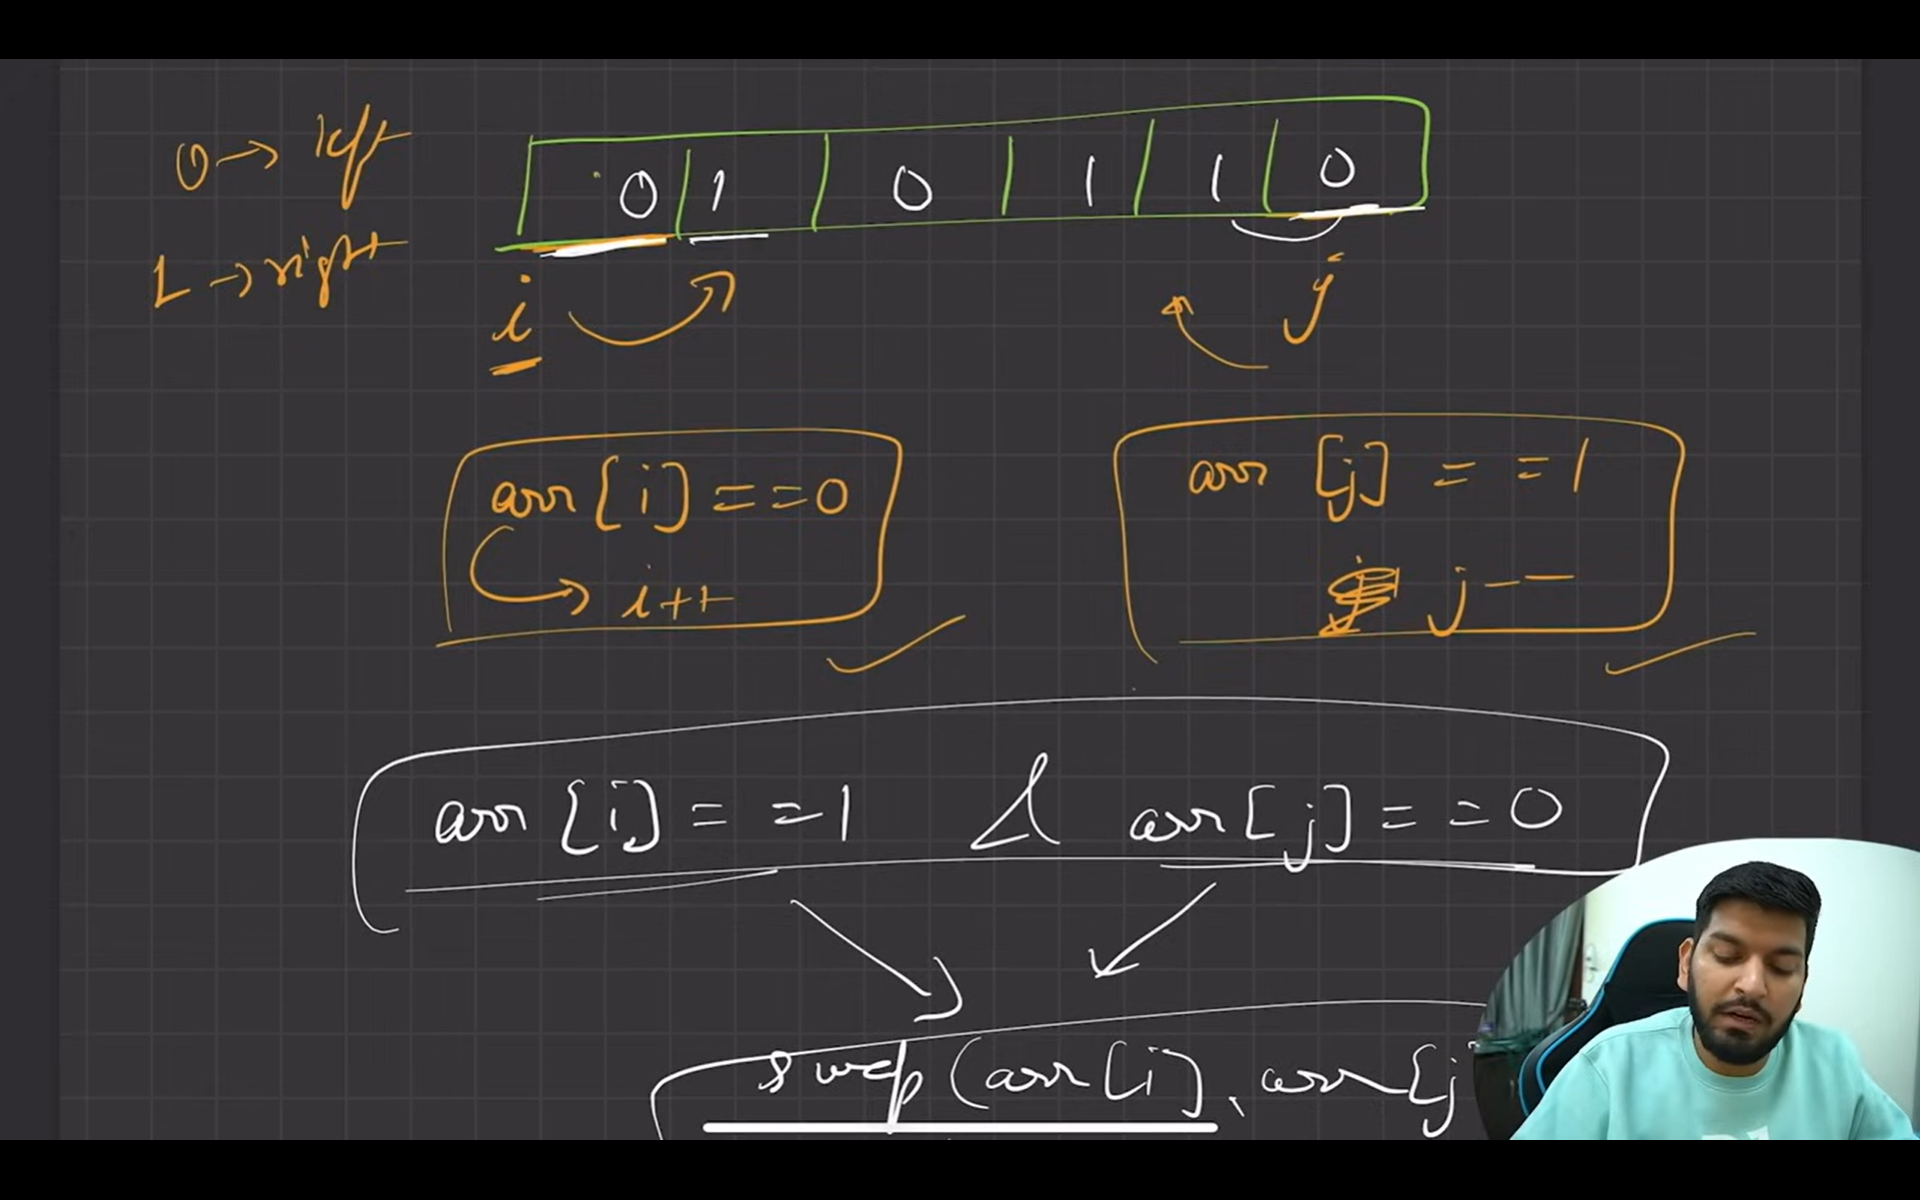 0 → left
1 → right
0 1 0 1 1 0
i j
arr[i] == 0
i++
arr[j] == 1
j--
arr[i] == 1 & arr[j] == 0
swap(arr[i], arr[j